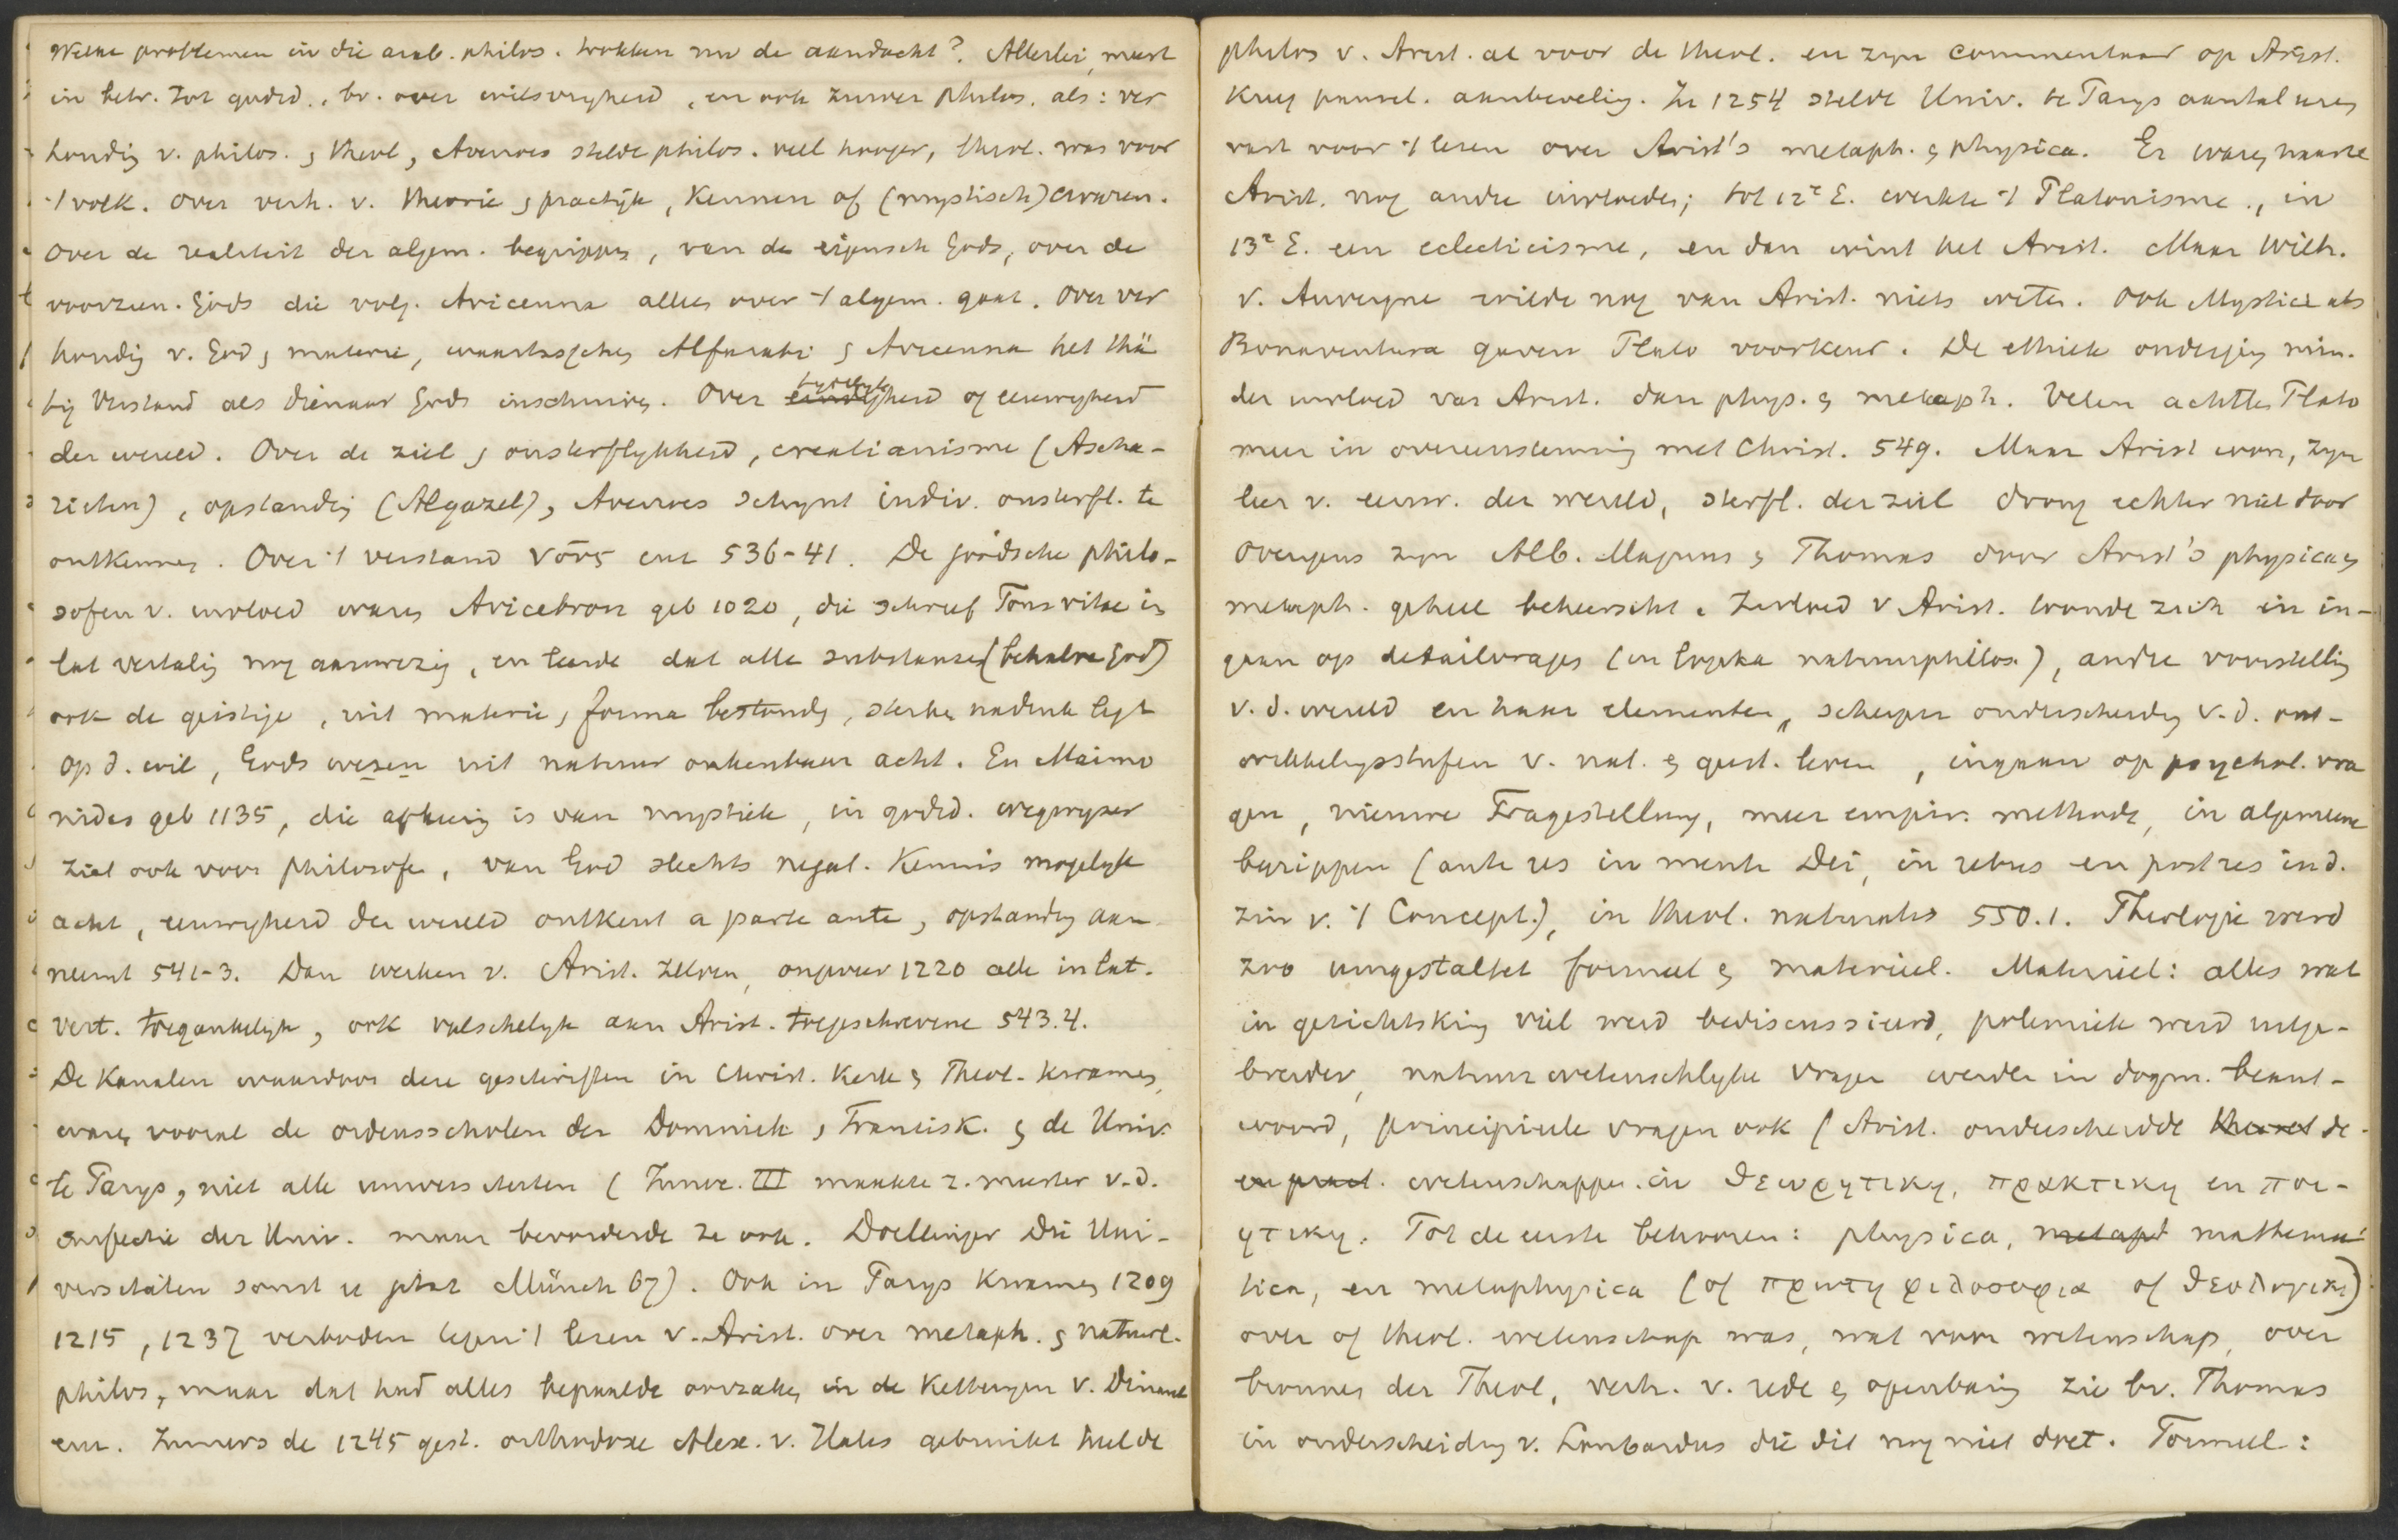 Welke problemen in die arab. philos. trokken nu de aandacht? Allerlei, meest
in betr. tot godsd., bv. over wilsvryheid, en ook zuiver philos. als: ver
houdig v. philos. & theol, Averroes stelde philos. veel hooger, theol. was voor
't volk. Over verh. v. theorie & practijk, kennen of (mystisch) ervaren.
Over de realiteit der algem. begrippen, van de eigensch Gods, over de
voorzien. Gods die volg. Avicenna alleen over 't algem. gaat. Over ver
houdig v. God & materie, waartusschen Alfarabi & Avicenna het thä
tig Verstand als dienaar Gods inschuiven. Over tydelykheid of eeuwigheid
der wereld. Over de ziel & onsterflykheid, creatianisme (Ascha-
rieten), opstandig (Algazel), Averroes schynt indiv. onsterfl. te
ontkennen. Over 't verstand νοῦς enz 536-41. De joodsche philo-
sofen v. invloed waren Avicebron geb 1020, die schreef Fons vitae in
lat vertalig nog aanwezig, en leerde dat alle substanzen (behalve God)
ook de geistige, uit materie & forma bestonden, sterken nadruk legt
op d. wil, Gods wezen uit natuur onkenbaar acht. En Maimo
nides geb 1135, die afkeerig is van mystiek, in godsd. wegwyzer
ziet ook voor philosofen, van God slechts negat. kennis mogelyk
acht, eeuwigheid der wereld ontkent a parte ante, opstanding aan
neemt 541-3. Dan werken v. Arist. zelven, ongeveer 1220 alle in lat.
vert. toegankelyk, ook valschelyk aan Arist. toegeschrevene 543.4.
De kanalen waardoor deze geschriften in Christ. kerk & Theol. kwamen,
waren vooral de ordensscholen der Dominik. & Francisk. & de Univ.
te Parys, niet alle universiteiten (Innoc. III maakte z. meester v.d.
directie der Univ. maar bevorderde ze ook. Doellinger Die Uni-
versitäten sonst u jetzt Münch 67). Ook in Parys kwamen 1209
1215, 1237 verboden tegen 't lezen v. Arist. over metaph. & natuurl.
philos, maar dat had alles bepaalde oorzaken in de ketteryen v. Dinant
enz. Immers de 1245 gest. orthodoxe Alex. v. Hales gebruikt heel de
philos v. Arist. al voor de theol. en zyn commentaar op Arist.
kreeg pausel. aanbeveling. In 1254 stelde Univ. te Parys aantal uren
vast voor 't lezen over Arist's metaph. & physica. Er waren naast
Arist. nog andre invloeden; tot 12e E. werkte 't Platonisme, in
13e E. een eclecticisme, en dan wint het Arist. Maar Wilh.
v. Auvergne wilde nog van Arist. niets weten. Ook Mystici als
Bonaventura gaven Plato voorkeur. De ethiek ondergin min.
der invloed van Arist. dan phys. & metaph. Velen achtten Plato
meer in overeenstemming met Christ. 549. Maar Arist won, zyn
leer v. eeuw. der wereld, sterfl. der ziel drong echter niet door
Overigens zyn Alb. Magnus & Thomas door Arist's physica &
metaph. geheel beheerscht. Invloed v Arist. toonde zich in in-
gaan op detailvragen (in logika natuurphilos.), andre voorstellig
v.d. wereld en haar elementen, scherper onderscheidg v.d. ont-
wikkelingsstufen v. nat. & geest. leven, ingaan op psychol. vra
gen, nieuwe Fragestellung, meer empir. methode, in algemeene
begrippen (ante res in mente Dei, in rebus en post res in d.
zin v. 't Concept.), in theol. naturalis 550.1. Theologie werd
zoo umgestaltet formeel & materieel. Materieel: alles wat
in gezichtskring viel werd bediscussieerd, polemiek werd uitge-
breider, natuurwetenschlyke vragen werden in dogm. beant-
woord, principieele vragen ook (Arist. onderscheidde theoret de
en pract. wetenschappen in θεωρητικη, πρακτικη en ποι-
ητικη. Tot de eerste behooren: physica, metaph mathema-
tica, en metaphysica (of πρωτη φιλοσοφια of θεολογικη)
over of theol. wetenschap was, wat voor wetenschap, over
bronnen der Theol, verh. v. rede & openbaring zie bv. Thomas
in onderscheiding v. Lombardus die dit nog niet doet. Formeel: